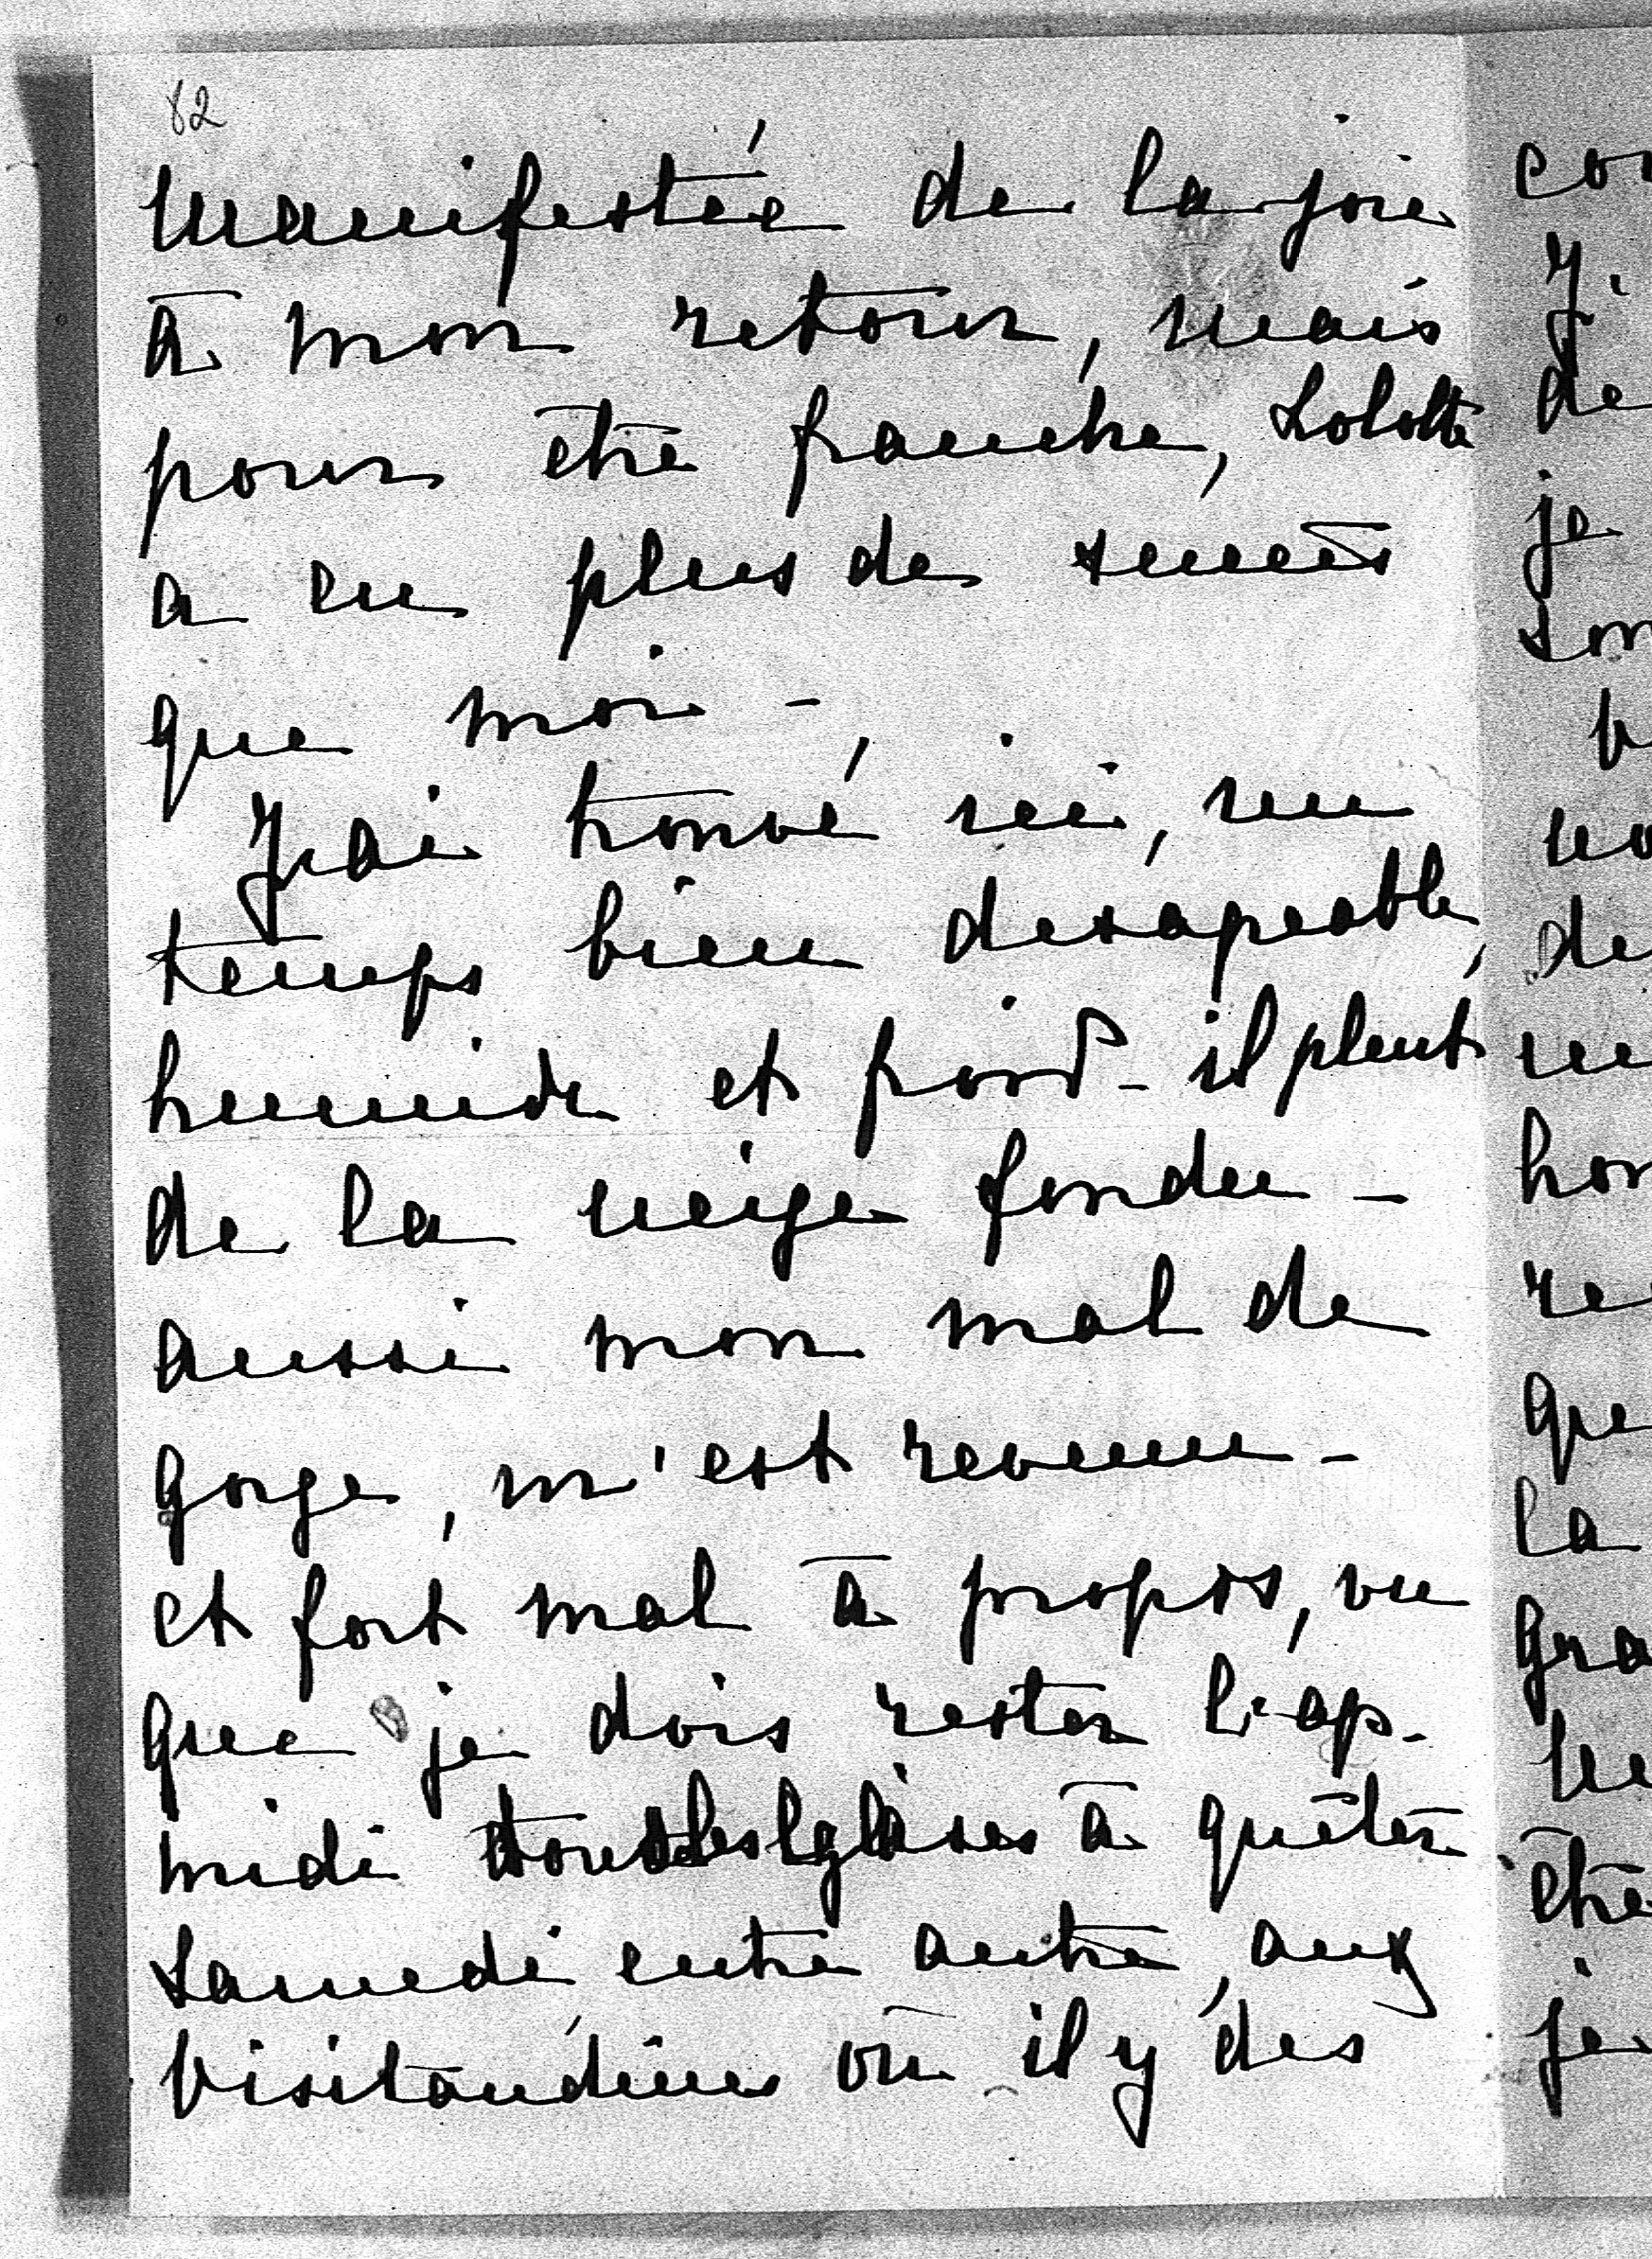 82
manifestée de la joie
à mon retour, mais
pour être franche, Lolotte
a eu plus de succès
que moi -
J'ai trouvé ici, un
temps bien desagreable,
humide et froid - il pleut
de la neige fondue -
aussi mon mal de
gorge, m'est revenu -
et fort mal à propos, vu
que je dois rester l'ap-
midi à quêter
Samedi entre autre, aux
Visitandines où il y des